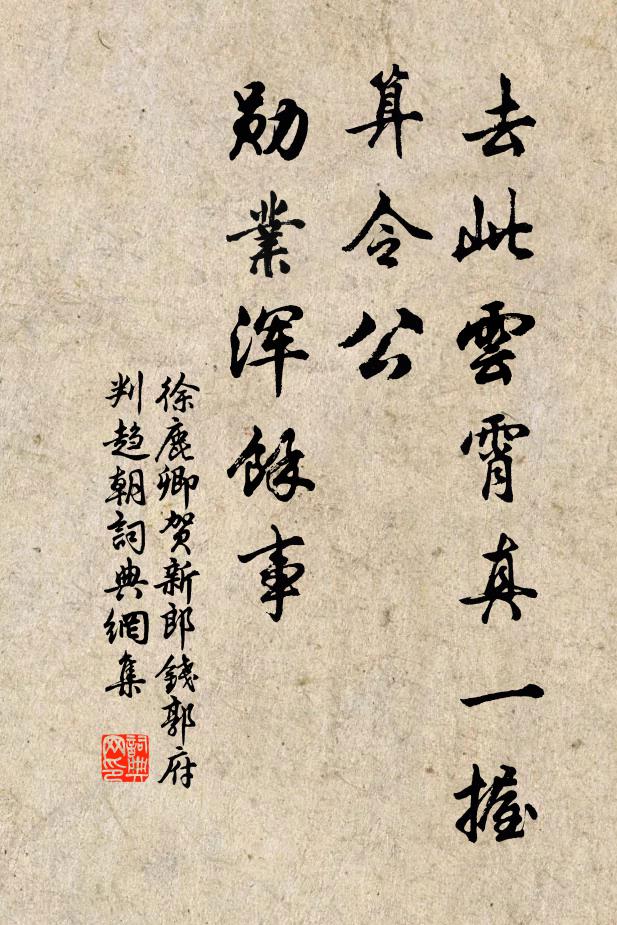 去此雲霄真一握
算令公
勛業渾餘事
徐鹿卿賀新郎錢郭府
判趨朝詞典網集
詞典
网印